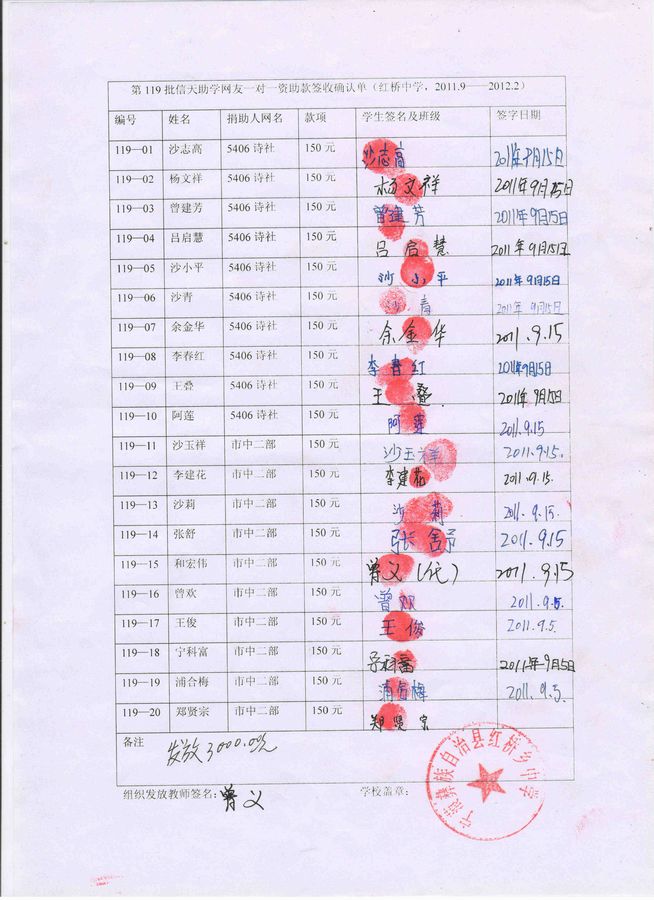 第119批信天助学网友一对一资助款签收确认单（红桥中学，2011.9——2012.2）
编号 姓名 捐助人网名 款项 学生签名及班级 签字日期
119—01 沙志高 5406诗社 150元 沙志高 2011年9月15日
119—02 杨文祥 5406诗社 150元 杨文祥 2011年9月15日
119—03 曾建芳 5406诗社 150元 曾建芳 2011年9月15日
119—04 吕启慧 5406诗社 150元 吕启慧 2011年9月15日
119—05 沙小平 5406诗社 150元 沙小平 2011年9月15日
119—06 沙青 5406诗社 150元 沙青 2011年9月15日
119—07 余金华 5406诗社 150元 余金华 2011.9.15
119—08 李春红 5406诗社 150元 李春红 2011年9月15日
119—09 王叠 5406诗社 150元 王叠 2011年9月15日
119—10 阿莲 5406诗社 150元 阿莲 2011.9.15
119—11 沙玉祥 市中二部 150元 沙玉祥 2011.9.15.
119—12 李建花 市中二部 150元 李建花 2011.9.15.
119—13 沙莉 市中二部 150元 沙莉 2011.9.15.
119—14 张舒 市中二部 150元 张舒 2011.9.15
119—15 和宏伟 市中二部 150元 曾义（代） 2011.9.15
119—16 曾欢 市中二部 150元 曾欢 2011.9.5.
119—17 王俊 市中二部 150元 王俊 2011.9.5.
119—18 宁科富 市中二部 150元 宁科富 2011年9月5日
119—19 浦合梅 市中二部 150元 浦合梅 2011.9.5.
119—20 郑贤宗 市中二部 150元 郑贤宗
备注 发放3000.0元
组织发放教师签名：曾义 学校盖章：
宁蒗彝族自治县红桥乡中学